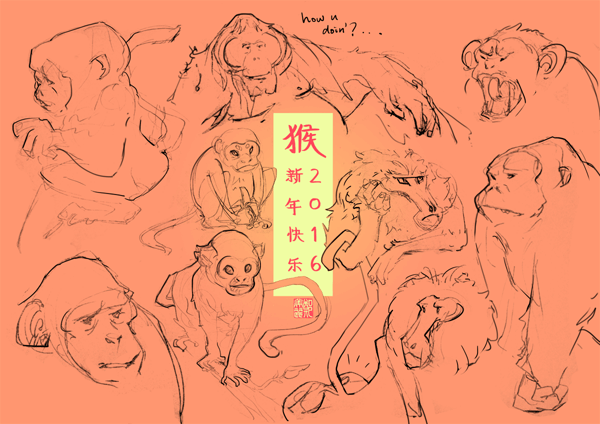 how u
doin'?...
猴
新年快乐
2016